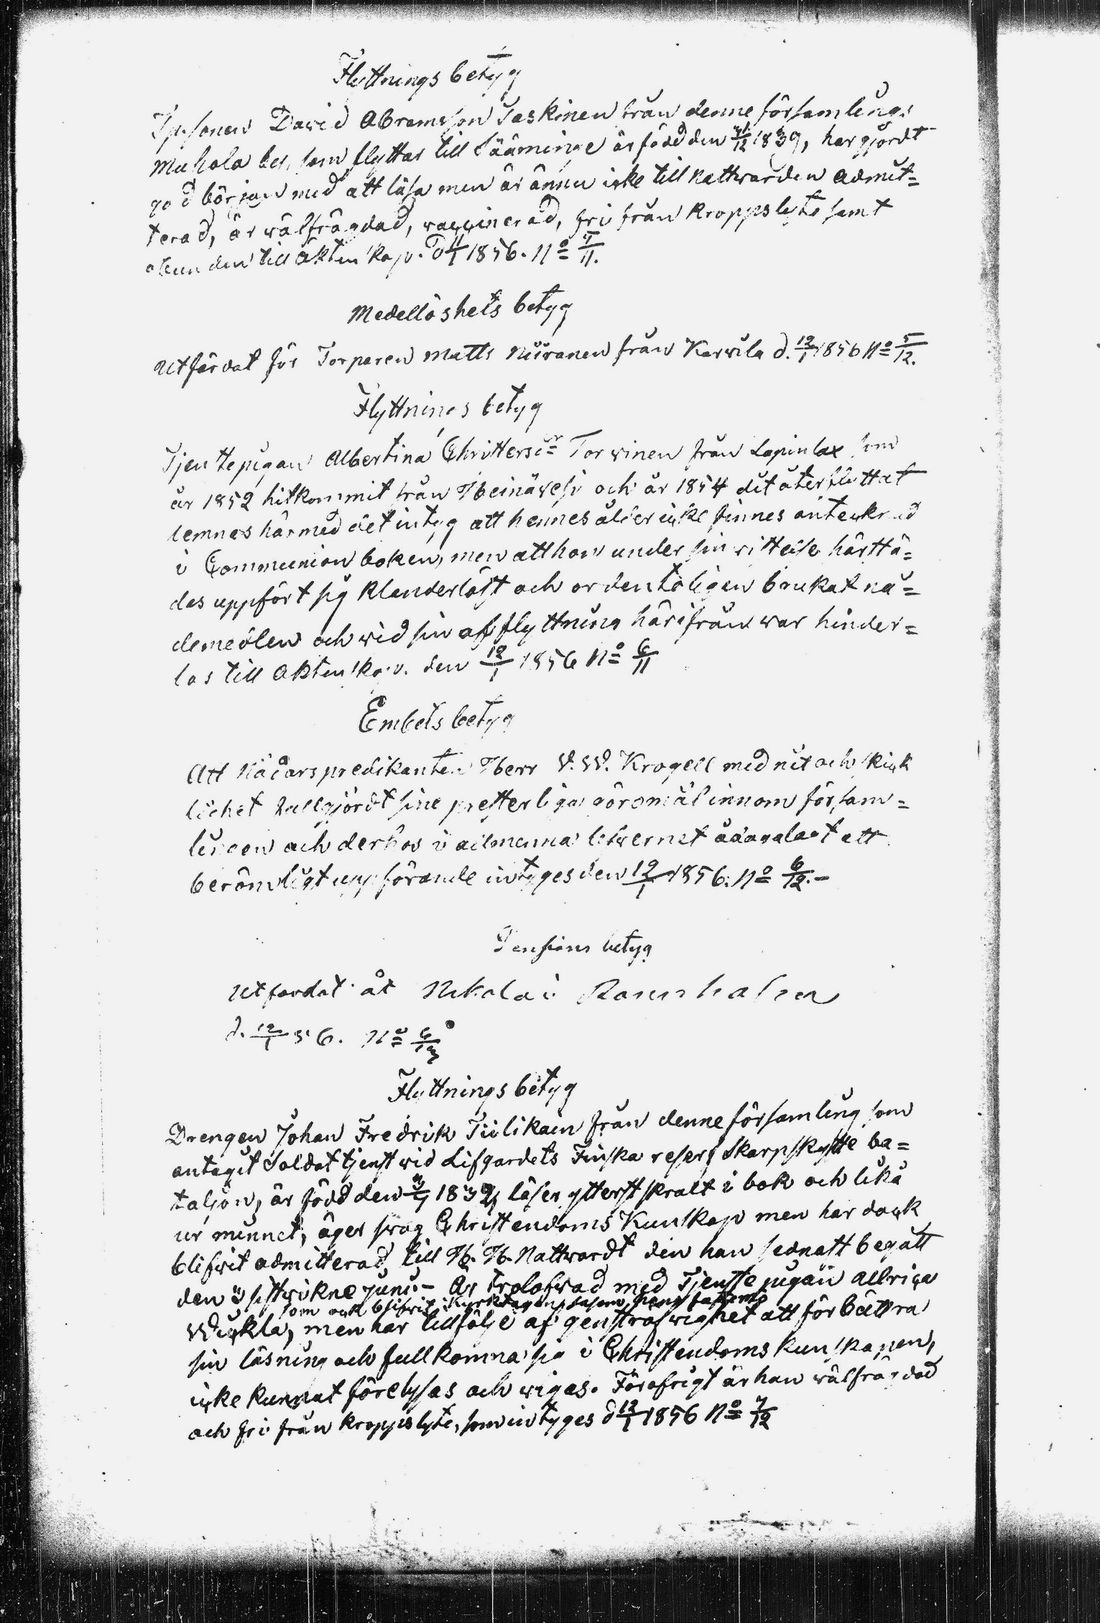 Flyttnings betyg
Ynsonen David Abramsson Taskinen från denne församlings
Muhola by, som flyttar till Sääminge är född den 31/12 1839, har gjordt
god början med att läsa men är ännu icke till nattwarden admit=
terad, är wälfrägdad, waccinerad, fri från kroppslyte samt
obunden till Äktenskap. D 4/1 1856. No 5/11.
Medellöshets betyg
Utfärdat för Torparen Matts Niiranen från Karwila d. 12/1 1856 No 5/12.
Flyttnings betyg
Tjenstepigan Albertina Christersdr Torwinen från Lapinlax som
år 1852 hitkommit från Heinäwesi och år 1854 dit återflyttat
lemnas härmed det intyg att hennes ålder icke finnes antecknad
i Communion boken, men att hon under sin wistelse härstä=
des uppfört sig klanderlöst och ordenteligen brukat nå=
demedlen och wid sin afflyttning härifrån war hinder=
lös till Äktenskap. den 12/1 1856 No 6/11
Embets betyg
Att Nådårspredikanten Herr W. Krogell med nit och skick
lighet fullgjordt sine presterliga göromål innom försam=
lingen och derhos i allmänna lefwernet ådagalagt ett
berömligt uppförande intyges den 12/1 1856. No 6/12.-
Pensions betyg
Utfärdat åt Nikolai
d. 12/1 56. No 6/13
Flyttnings betyg
Drengen Johan Fredrik Tiilikain från denne församling som
antagit Soldattjenst wid Lifgardets Finska reserf Skarpskytte ba=
taljon, är född den 1832, läser ytterst skralt i bok och lika
ur minnet, äger swag Christendoms Kunskap men har dock
blifwit admitterad till H. H. Nattwardt den han sednast begått
den sistwikne Juni.- Är trolofwad med Tjenstepigan Ulbrica
som ock blifwit
men har tillfölje af gensträfwighet att förbättra
sin läsning och fullkomna sig i Christendoms kunskapen,
icke kunnat förelysas och wigas. Förofrigt är han wälfrägdad
och fri från kroppslyte, som intyges d 12/1 1856 No 7/12